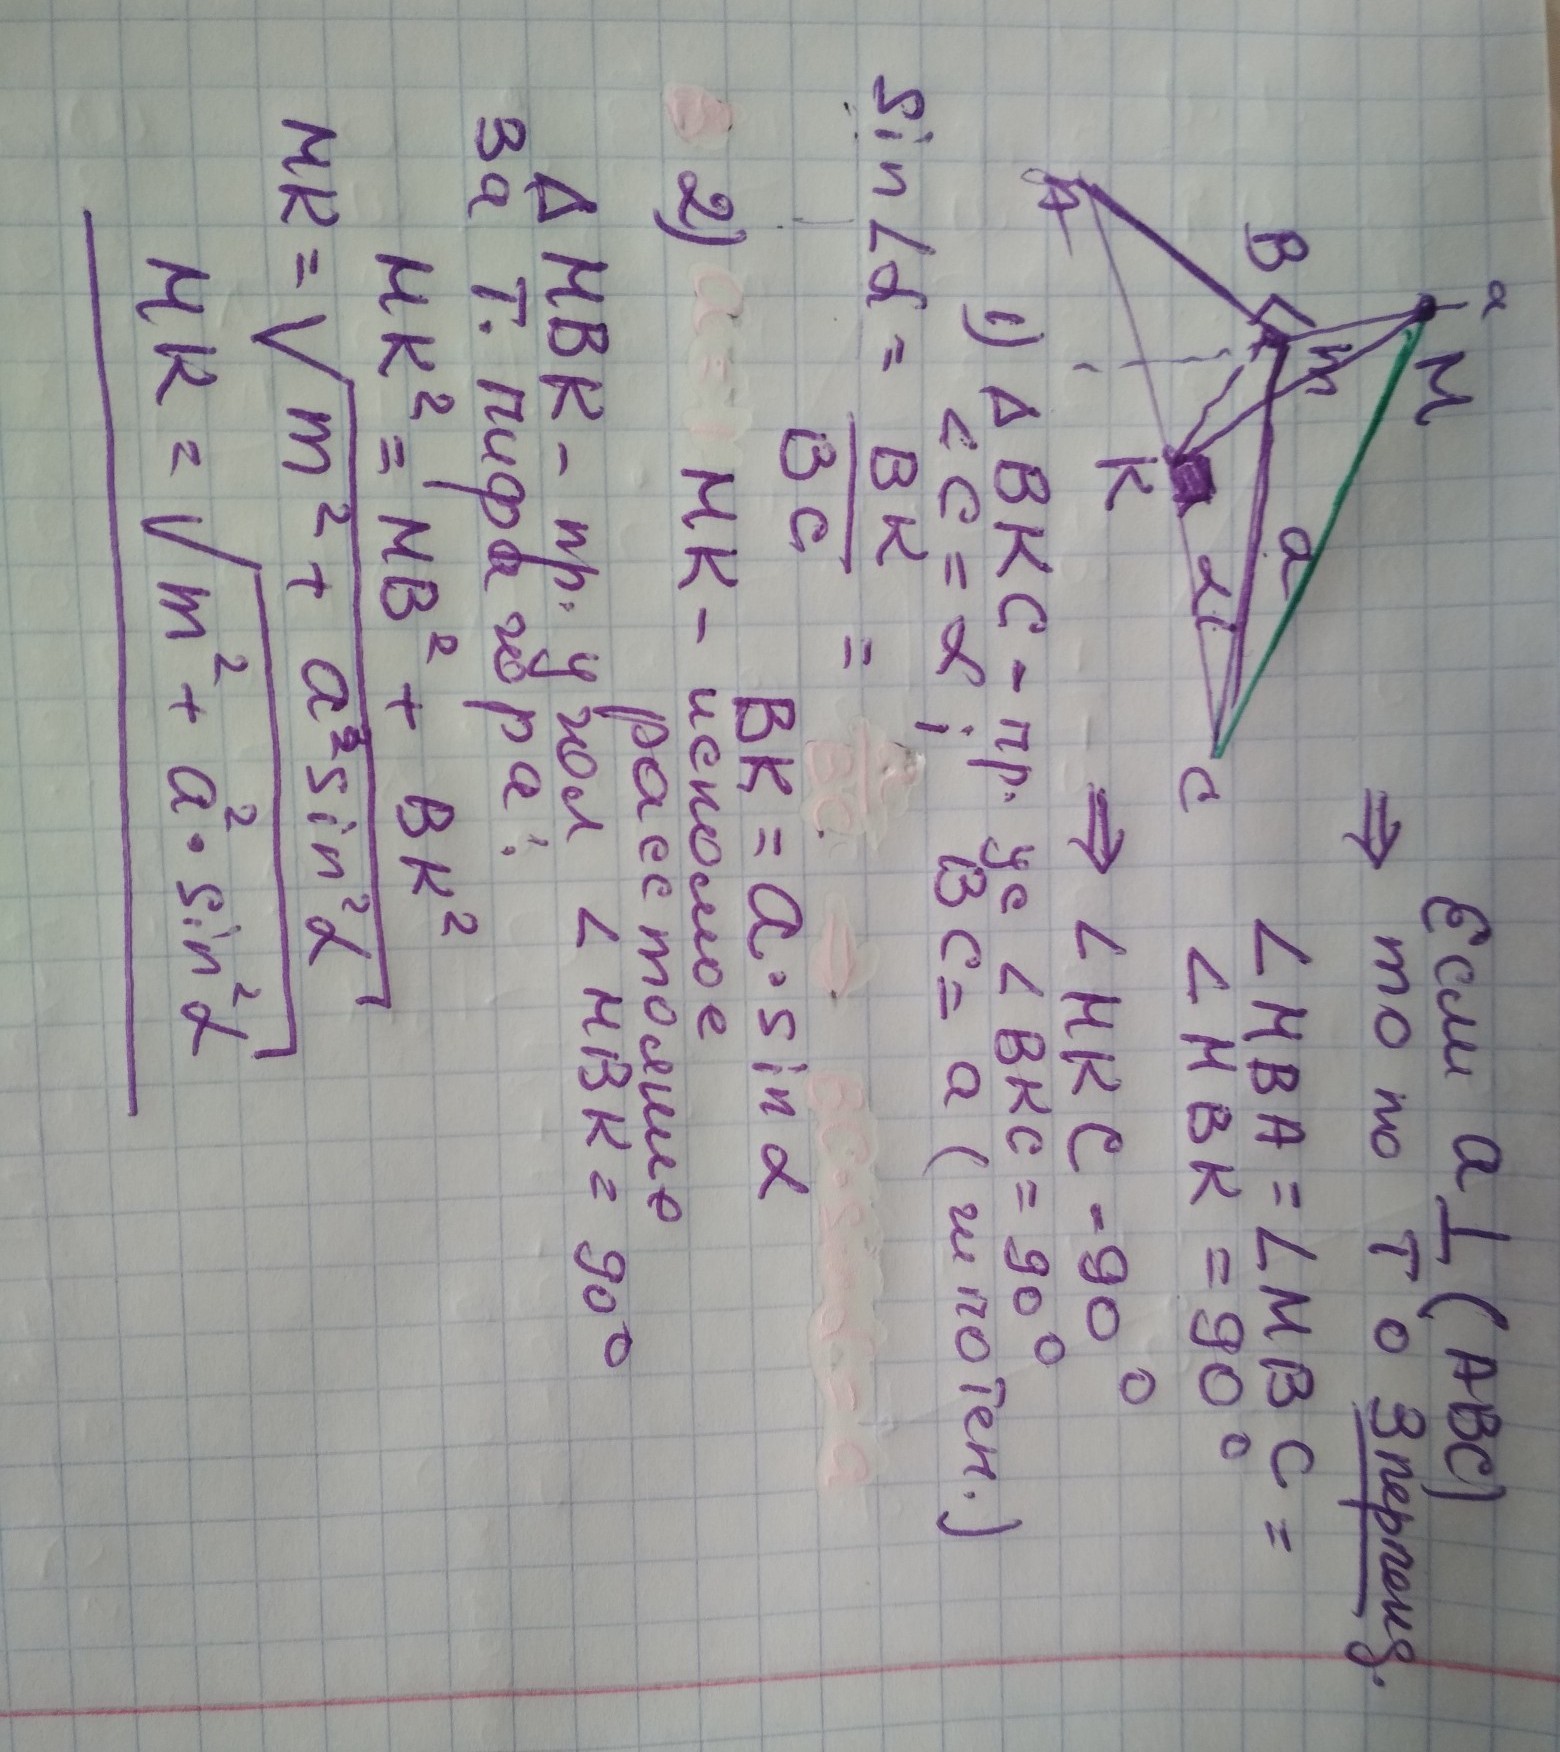 a
M
m
B
a
A
K
α
C
Если a ⊥ (ABC)
⇒ то по Т о 3 перпенд.
∠MBA = ∠MBC =
∠MBK = 90°
⇒ ∠MKC - 90°
1) Δ BKC - пр. yc ∠BKC = 90°
∠C = α; BC = a (гипотен.)
sin∠α = BK / BC =
BK = a · sin α
2) MK - искомое
расстояние
Δ MBK - пр. угол ∠MBK = 90°
За Т. пифагора:
MK² = MB² + BK²
MK = √m² + a² sin²α
MK = √m² + a² · sin²α